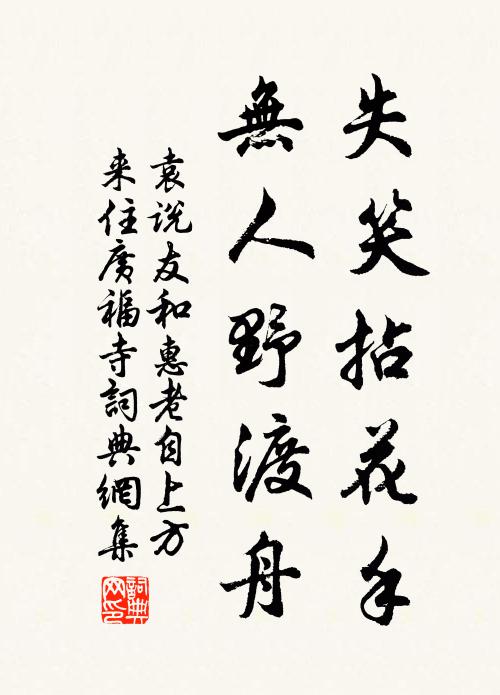 失笑拈花手
無人野渡舟
袁说友和惠老自上方
来住廣福寺詞典網集
詞典
网印